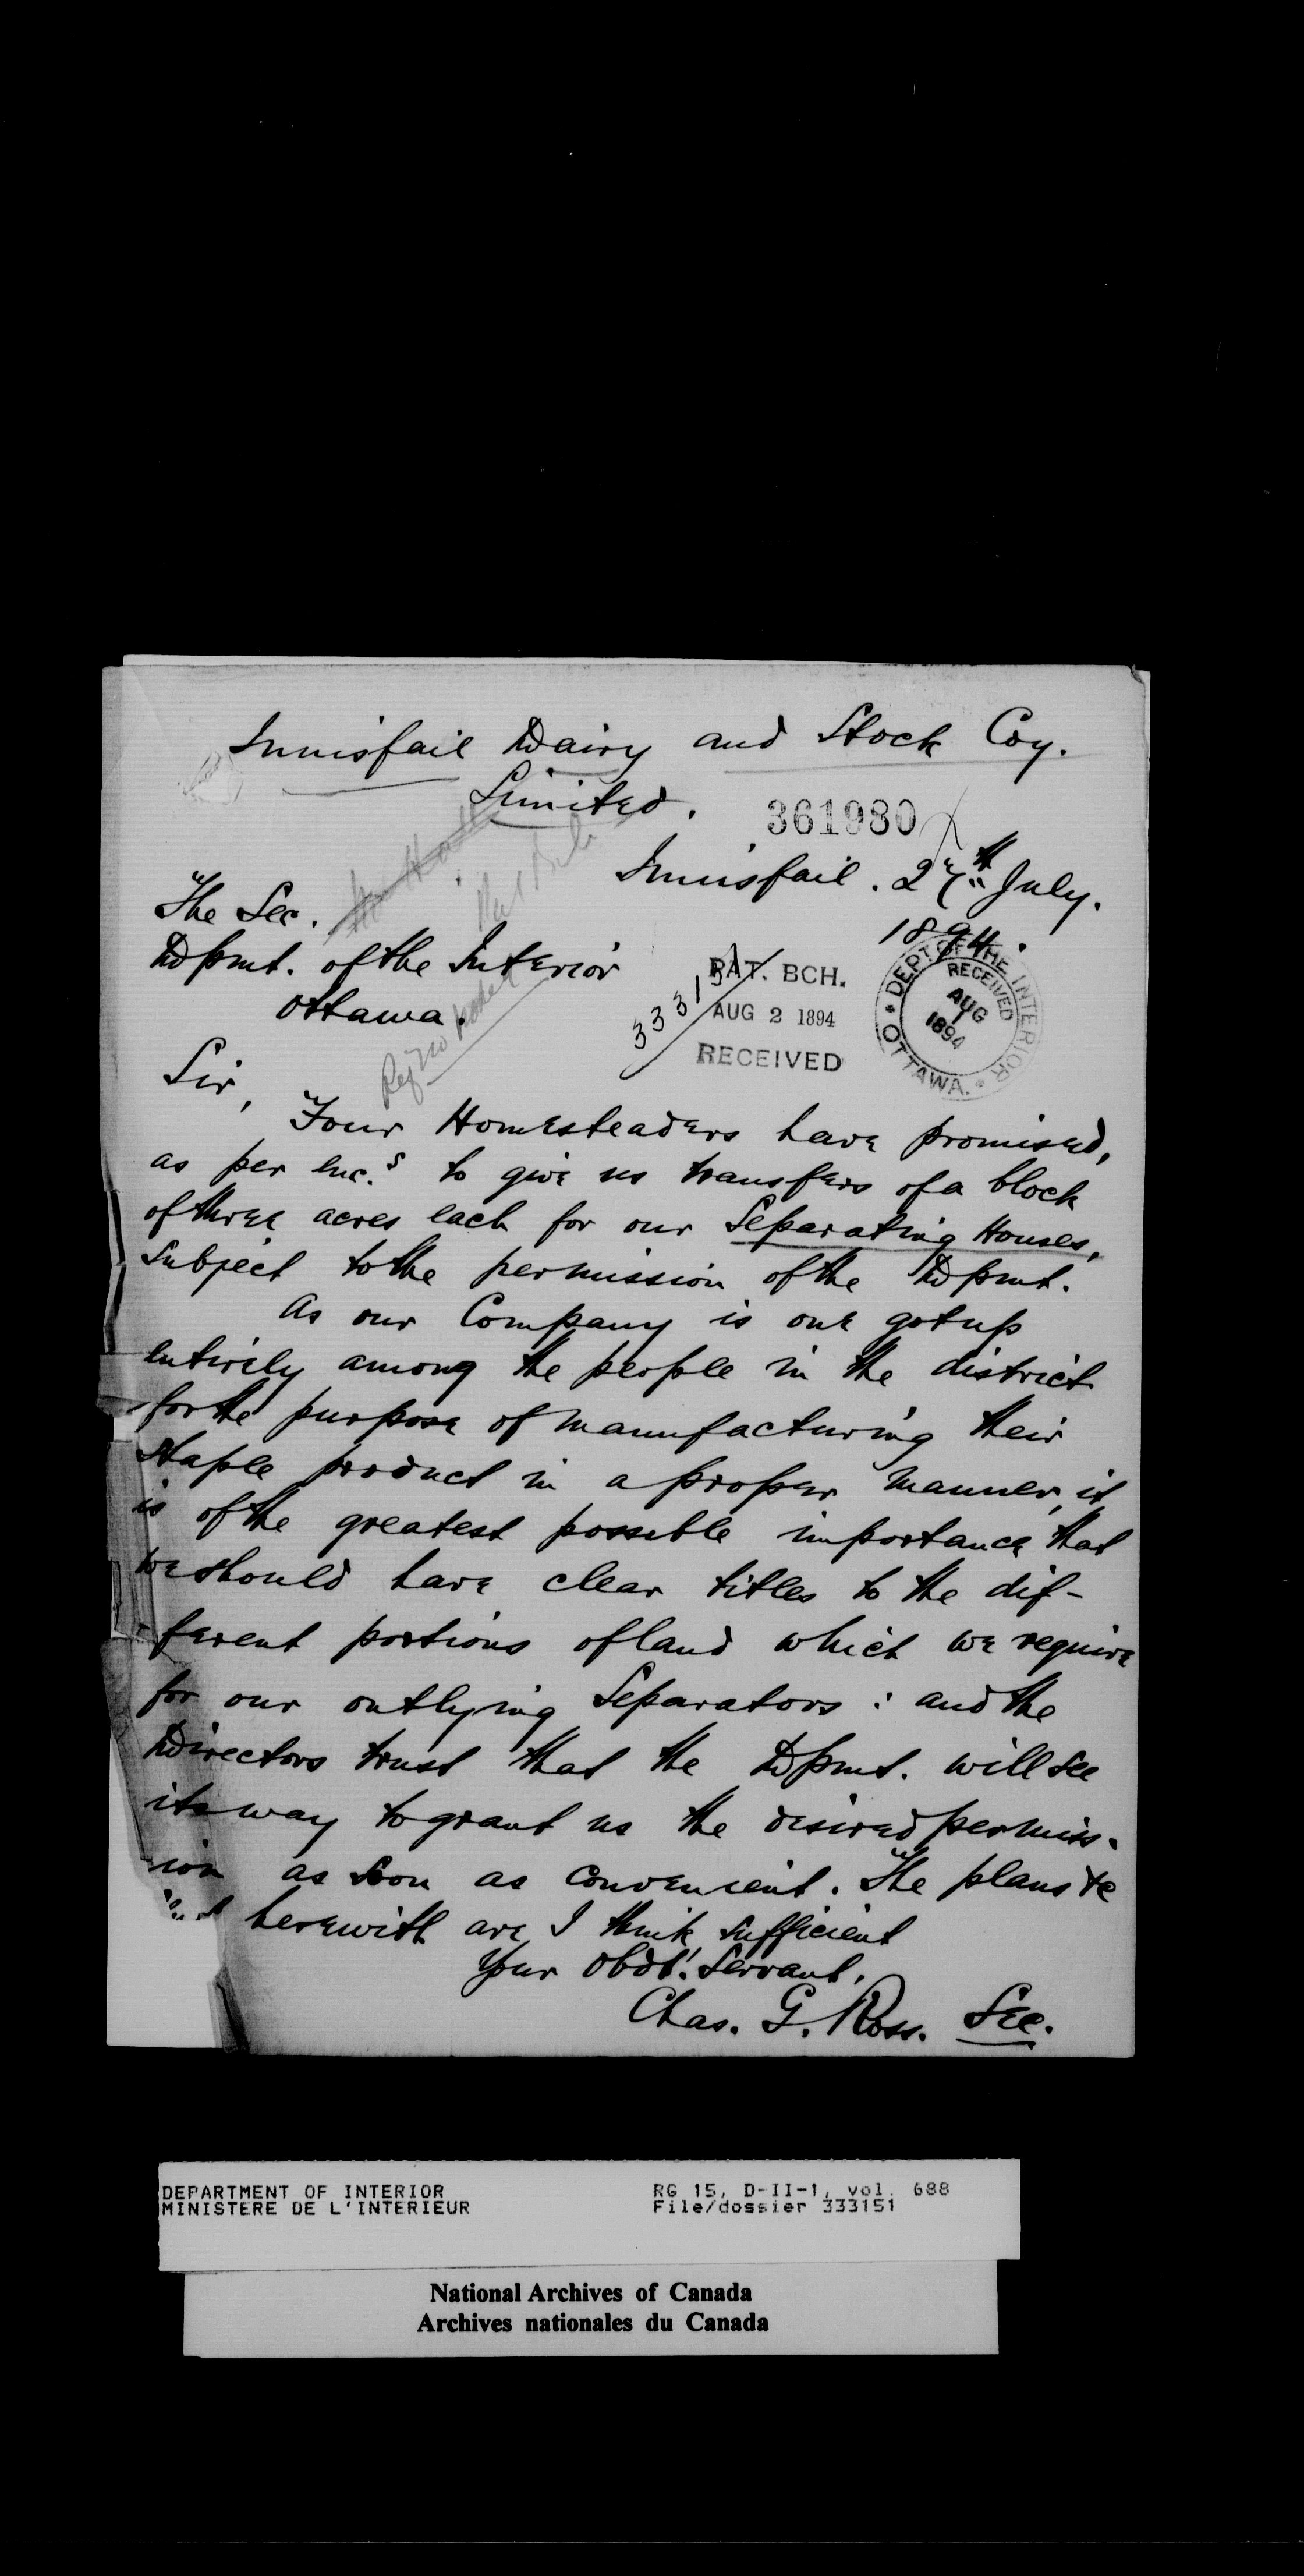 Innisfail Dairy and Stock Coy.
Limited.
361980
Innisfail. 27th July.
1894.
The Sec.
Dpmt. of the Interior
Ottawa.
333151
PAT. BCH.
AUG 2 1894
RECEIVED
DEPT. OF THE INTERIOR
RECEIVED
AUG
1
1894
OTTAWA.
Sir,
Four Homesteaders have promised,
as per enc.s to give us transfers of a block
of three acres each for our Separating Houses,
subject to the permission of the Dpmt.
As our Company is one got up
entirely among the people in the district
for the purpose of manufacturing their
staple product in a proper manner, it
is of the greatest possible importance that
we should have clear titles to the dif-
ferent portions of land which we require
for our outlying Separators: and the
Directors trust that the Dpmt. will see
its way to grant us the desired permiss-
ion as soon as convenient. The plans &c
herewith are I think sufficient
Your Obdt. Servant,
Chas. G. Ross. Sec.
DEPARTMENT OF INTERIOR RG 15, D-II-1, vol. 688
MINISTERE DE L'INTERIEUR File/dossier 333151
National Archives of Canada
Archives nationales du Canada